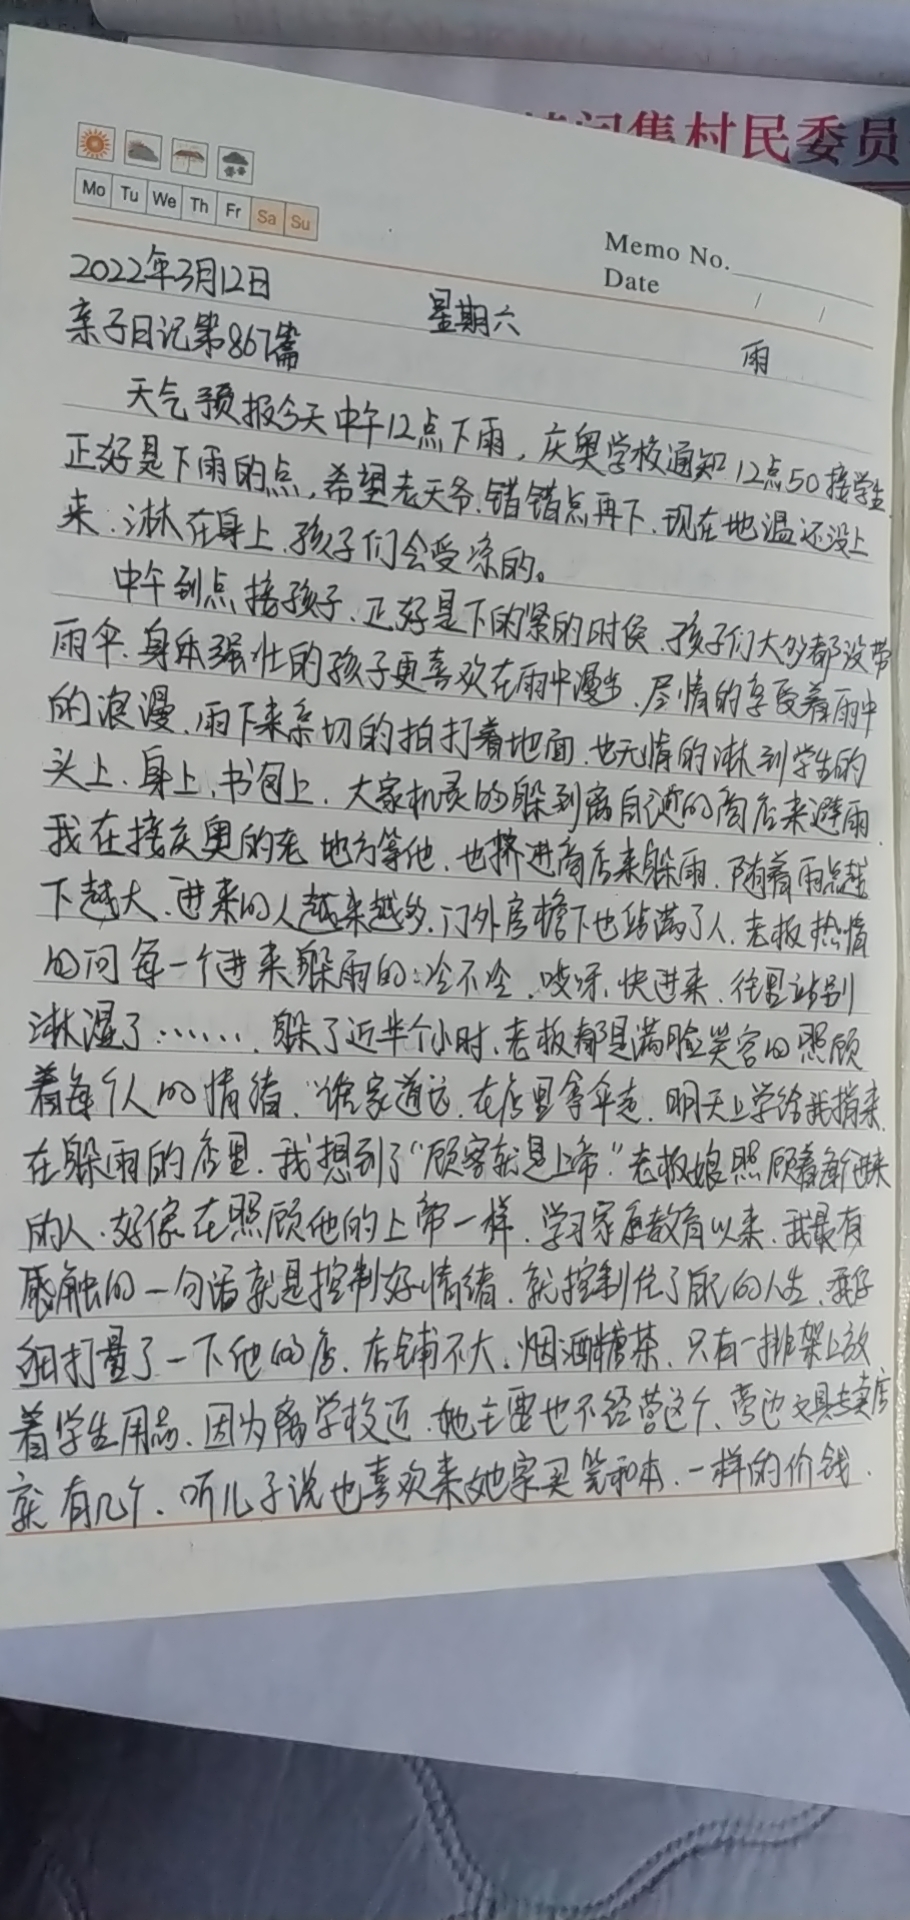 闫集村民委员
Mo Tu We Th Fr Sa Su
Memo No.
Date / /
2022年3月12日 星期六 雨
亲子日记第867篇
天气预报今天中午12点下雨,庆奥学校通知12点50接学生,
正好是下雨的点,希望老天爷错错点再下、现在地温还没上
来、淋在身上、孩子们会受凉的。
中午到点接孩子、正好是下的紧的时侯、孩子们大多都没带
雨伞、身体强壮的孩子更喜欢在雨中漫步、尽情的享受着雨中
的浪漫、雨下来亲切的拍打着地面、也无情的淋到学生的
头上、身上、书包上、大家机灵的躲到离自己近的商店来避雨、
我在接庆奥的老地方等他、也挤进商店来躲雨、随着雨点越
下越大、进来的人越来越多、门外房檐下也站满了人、老板热情
的问每一个进来躲雨的:冷不冷、哎呀、快进来、往里站别
淋湿了……、躲了近半个小时、老板都是满脸笑容的照顾
着每个人的情绪、“谁家道远、在店里拿伞走、明天上学给我捎来、
在躲雨的店里、我想到了“顾客就是上帝”老板娘照顾着每个进来
的人、好像在照顾他的上帝一样、学习家庭教育以来、我最有
感触的一句话就是控制好情绪、就控制住了自己的人生、我仔
细打量了一下他的店、店铺不大、烟酒糖茶、只有一排架上放
着学生用品、因为离学校近、她主要也不经营这个、旁边文具专卖店
就有几个、听儿子说也喜欢来她家买笔和本、一样的价钱、